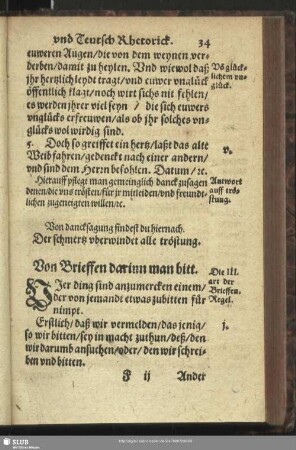 vnd Teutsch Rhetorick. 34
euweren Augen/die von dem weynen ver-
derben/damit zu heylen. Vnd wiewol daß
jhr hertzlich leydt tragt/vnd euwer vnglück
öffentlich klagt/noch wirt sichs nit fehlen/
es werden jhrer viel seyn / die sich euwers
vnglücks erfreuwen/als ob jhr solches vn-
glücks wol wirdig sind.
Vß glück-
lichem vn-
glück.
5. Doch so greiffet ein hertz/laßt das alte
Weib fahren/gedenckt nach einer andern/
vnd sind dem Herrn befohlen. Datum/ꝛc.
v.
Hierauff pflegt man gemeinglich danck zusagen
denen/die vns trösten/für jr mitleiden/vnd freundt-
lichen zugeneigten willen/ꝛc.
Antwort
auff trö-
stung.
Von dancksagung findest du hiernach.
Der schmertz vberwindet alle tröstung.
Von Brieffen darinn man bitt.
VIer ding sind anzumercken einem/
der von jemandt etwas zubitten für
nimpt.
Die III.
art der
Brieffen.
Regel.
Erstlich/daß wir vermelden/das jenig/
so wir bitten/sey in macht zuthun/deß/den
wir darumb ansuchen/oder/den wir schrei-
ben vnd bitten.
j.
F ij Ander
SLUB